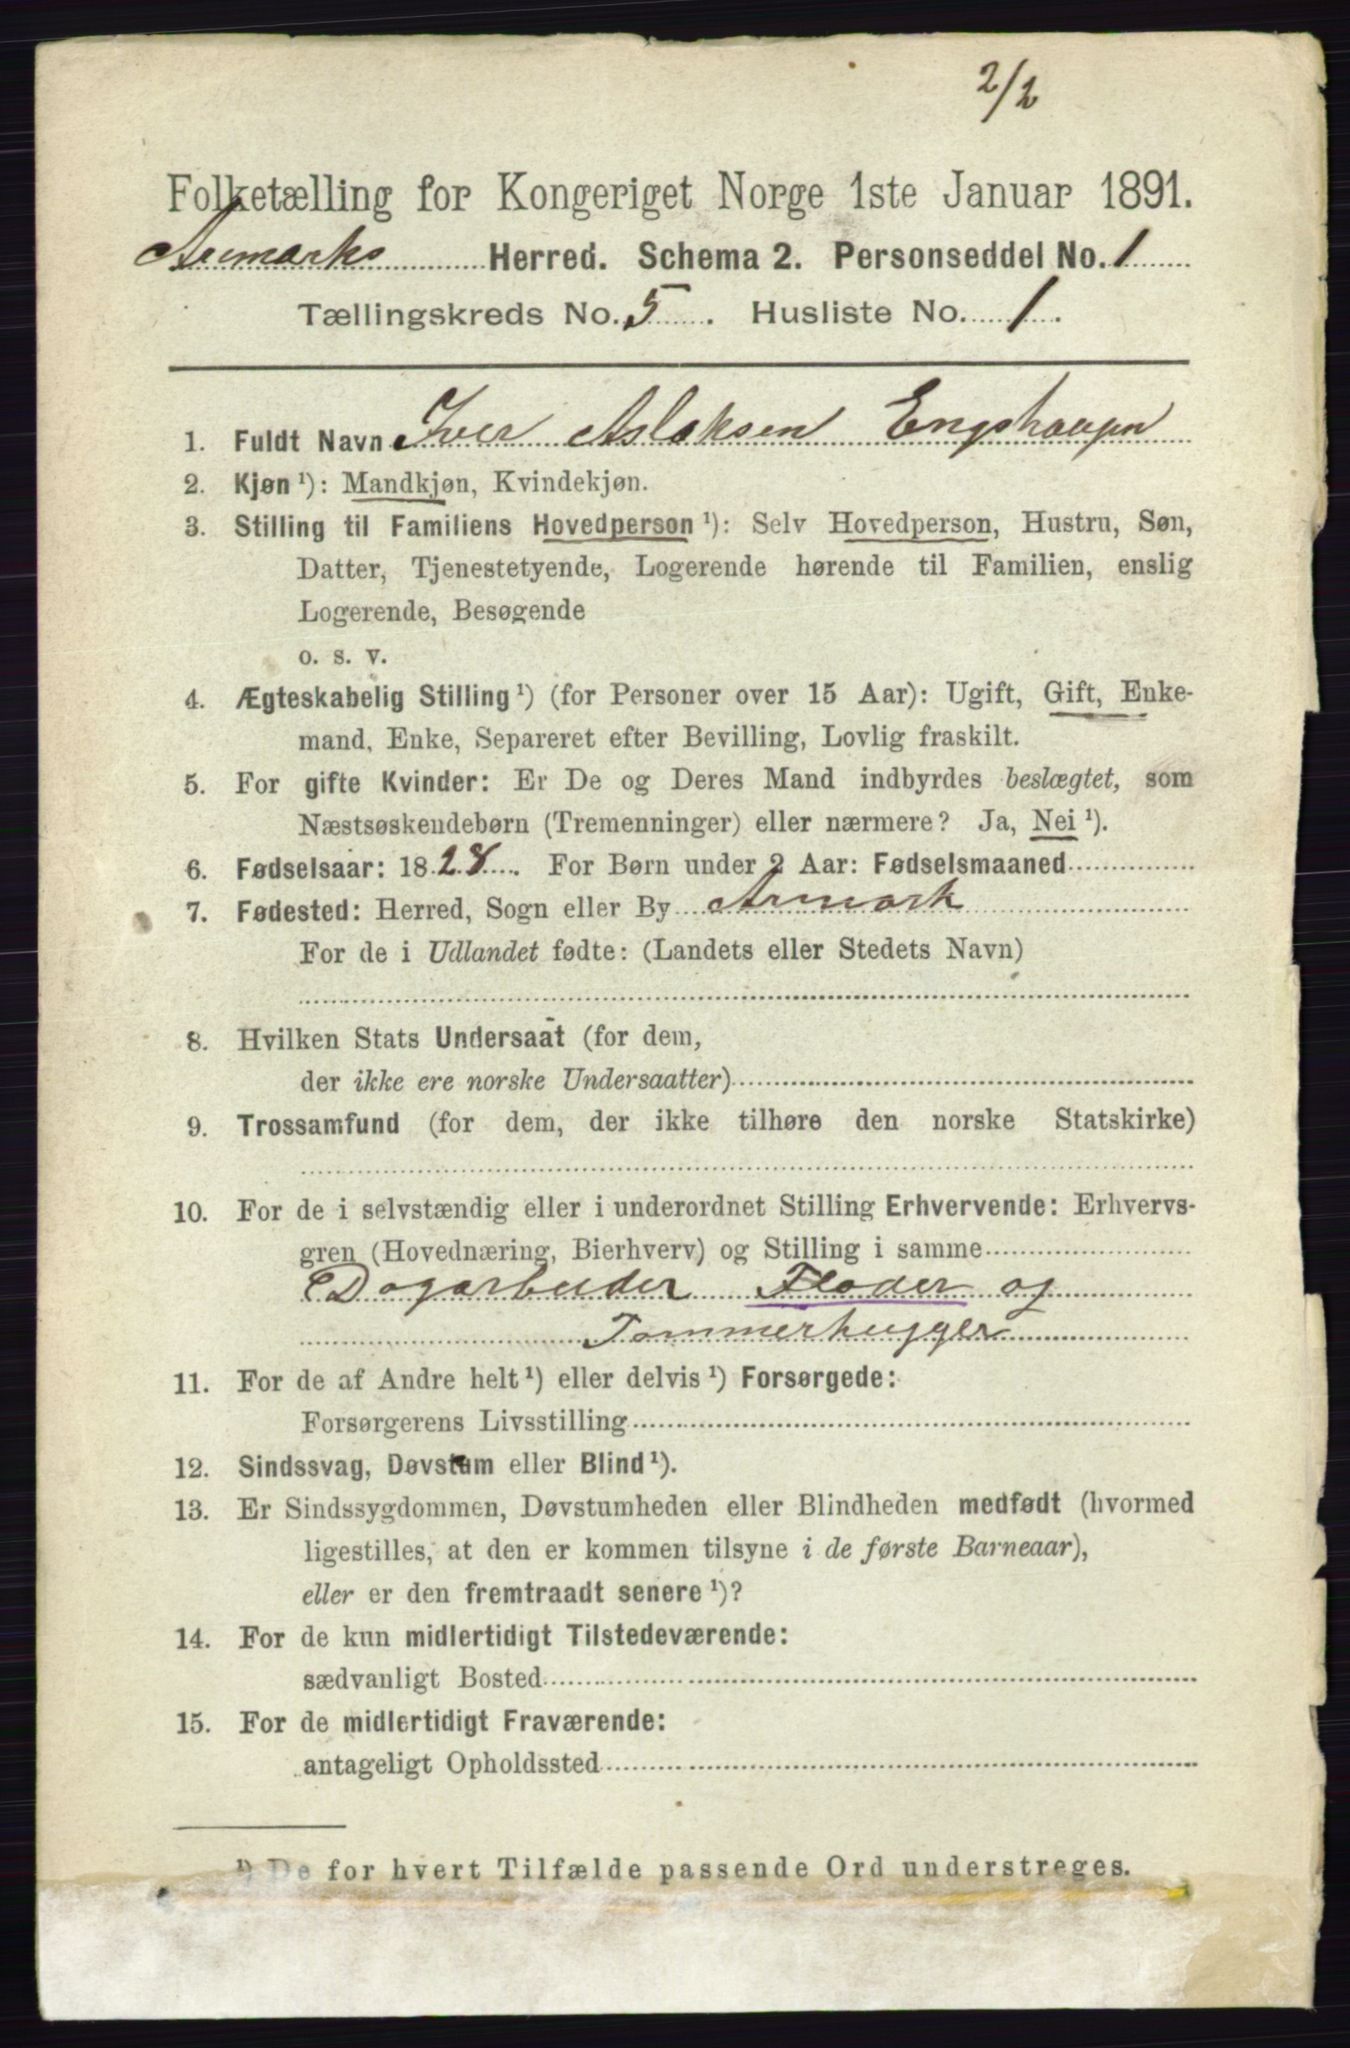 2/2
Folketælling for Kongeriget Norge 1ste Januar 1891.
Aremarks Herred. Schema 2. Personseddel No. 1
Tællingskreds No. 5. Husliste No. 1.
1. Fuldt Navn Iver Aslaksen Engshaugen
2. Kjøn ¹): Mandkjøn, Kvindekjøn.
3. Stilling til Familiens Hovedperson ¹): Selv Hovedperson, Hustru, Søn,
Datter, Tjenestetyende, Logerende hørende til Familien, enslig
Logerende, Besøgende
o. s. v.
4. Ægteskabelig Stilling ¹) (for Personer over 15 Aar): Ugift, Gift, Enke-
mand, Enke, Separeret efter Bevilling, Lovlig fraskilt.
5. For gifte Kvinder: Er De og Deres Mand indbyrdes beslægtet, som
Næstsøskendebørn (Tremenninger) eller nærmere? Ja, Nei ¹).
6. Fødselsaar: 1828. For Børn under 2 Aar: Fødselsmaaned
7. Fødested: Herred, Sogn eller By Armark
For de i Udlandet fødte: (Landets eller Stedets Navn)
8. Hvilken Stats Undersaat (for dem,
der ikke ere norske Undersaatter)
9. Trossamfund (for dem, der ikke tilhøre den norske Statskirke)
10. For de i selvstændig eller i underordnet Stilling Erhvervende: Erhvervs-
gren (Hovednæring, Bierhverv) og Stilling i samme
Dagarbeider Fløder og
Tømmerhugger
11. For de af Andre helt ¹) eller delvis ¹) Forsørgede:
Forsørgerens Livsstilling
12. Sindssvag, Døvstum eller Blind ¹).
13. Er Sindssygdommen, Døvstumheden eller Blindheden medfødt (hvormed
ligestilles, at den er kommen tilsyne i de første Barneaar),
eller er den fremtraadt senere ¹)?
14. For de kun midlertidigt Tilstedeværende:
sædvanligt Bosted
15. For de midlertidigt Fraværende:
antageligt Opholdssted
¹) De for hvert Tilfælde passende Ord understreges.